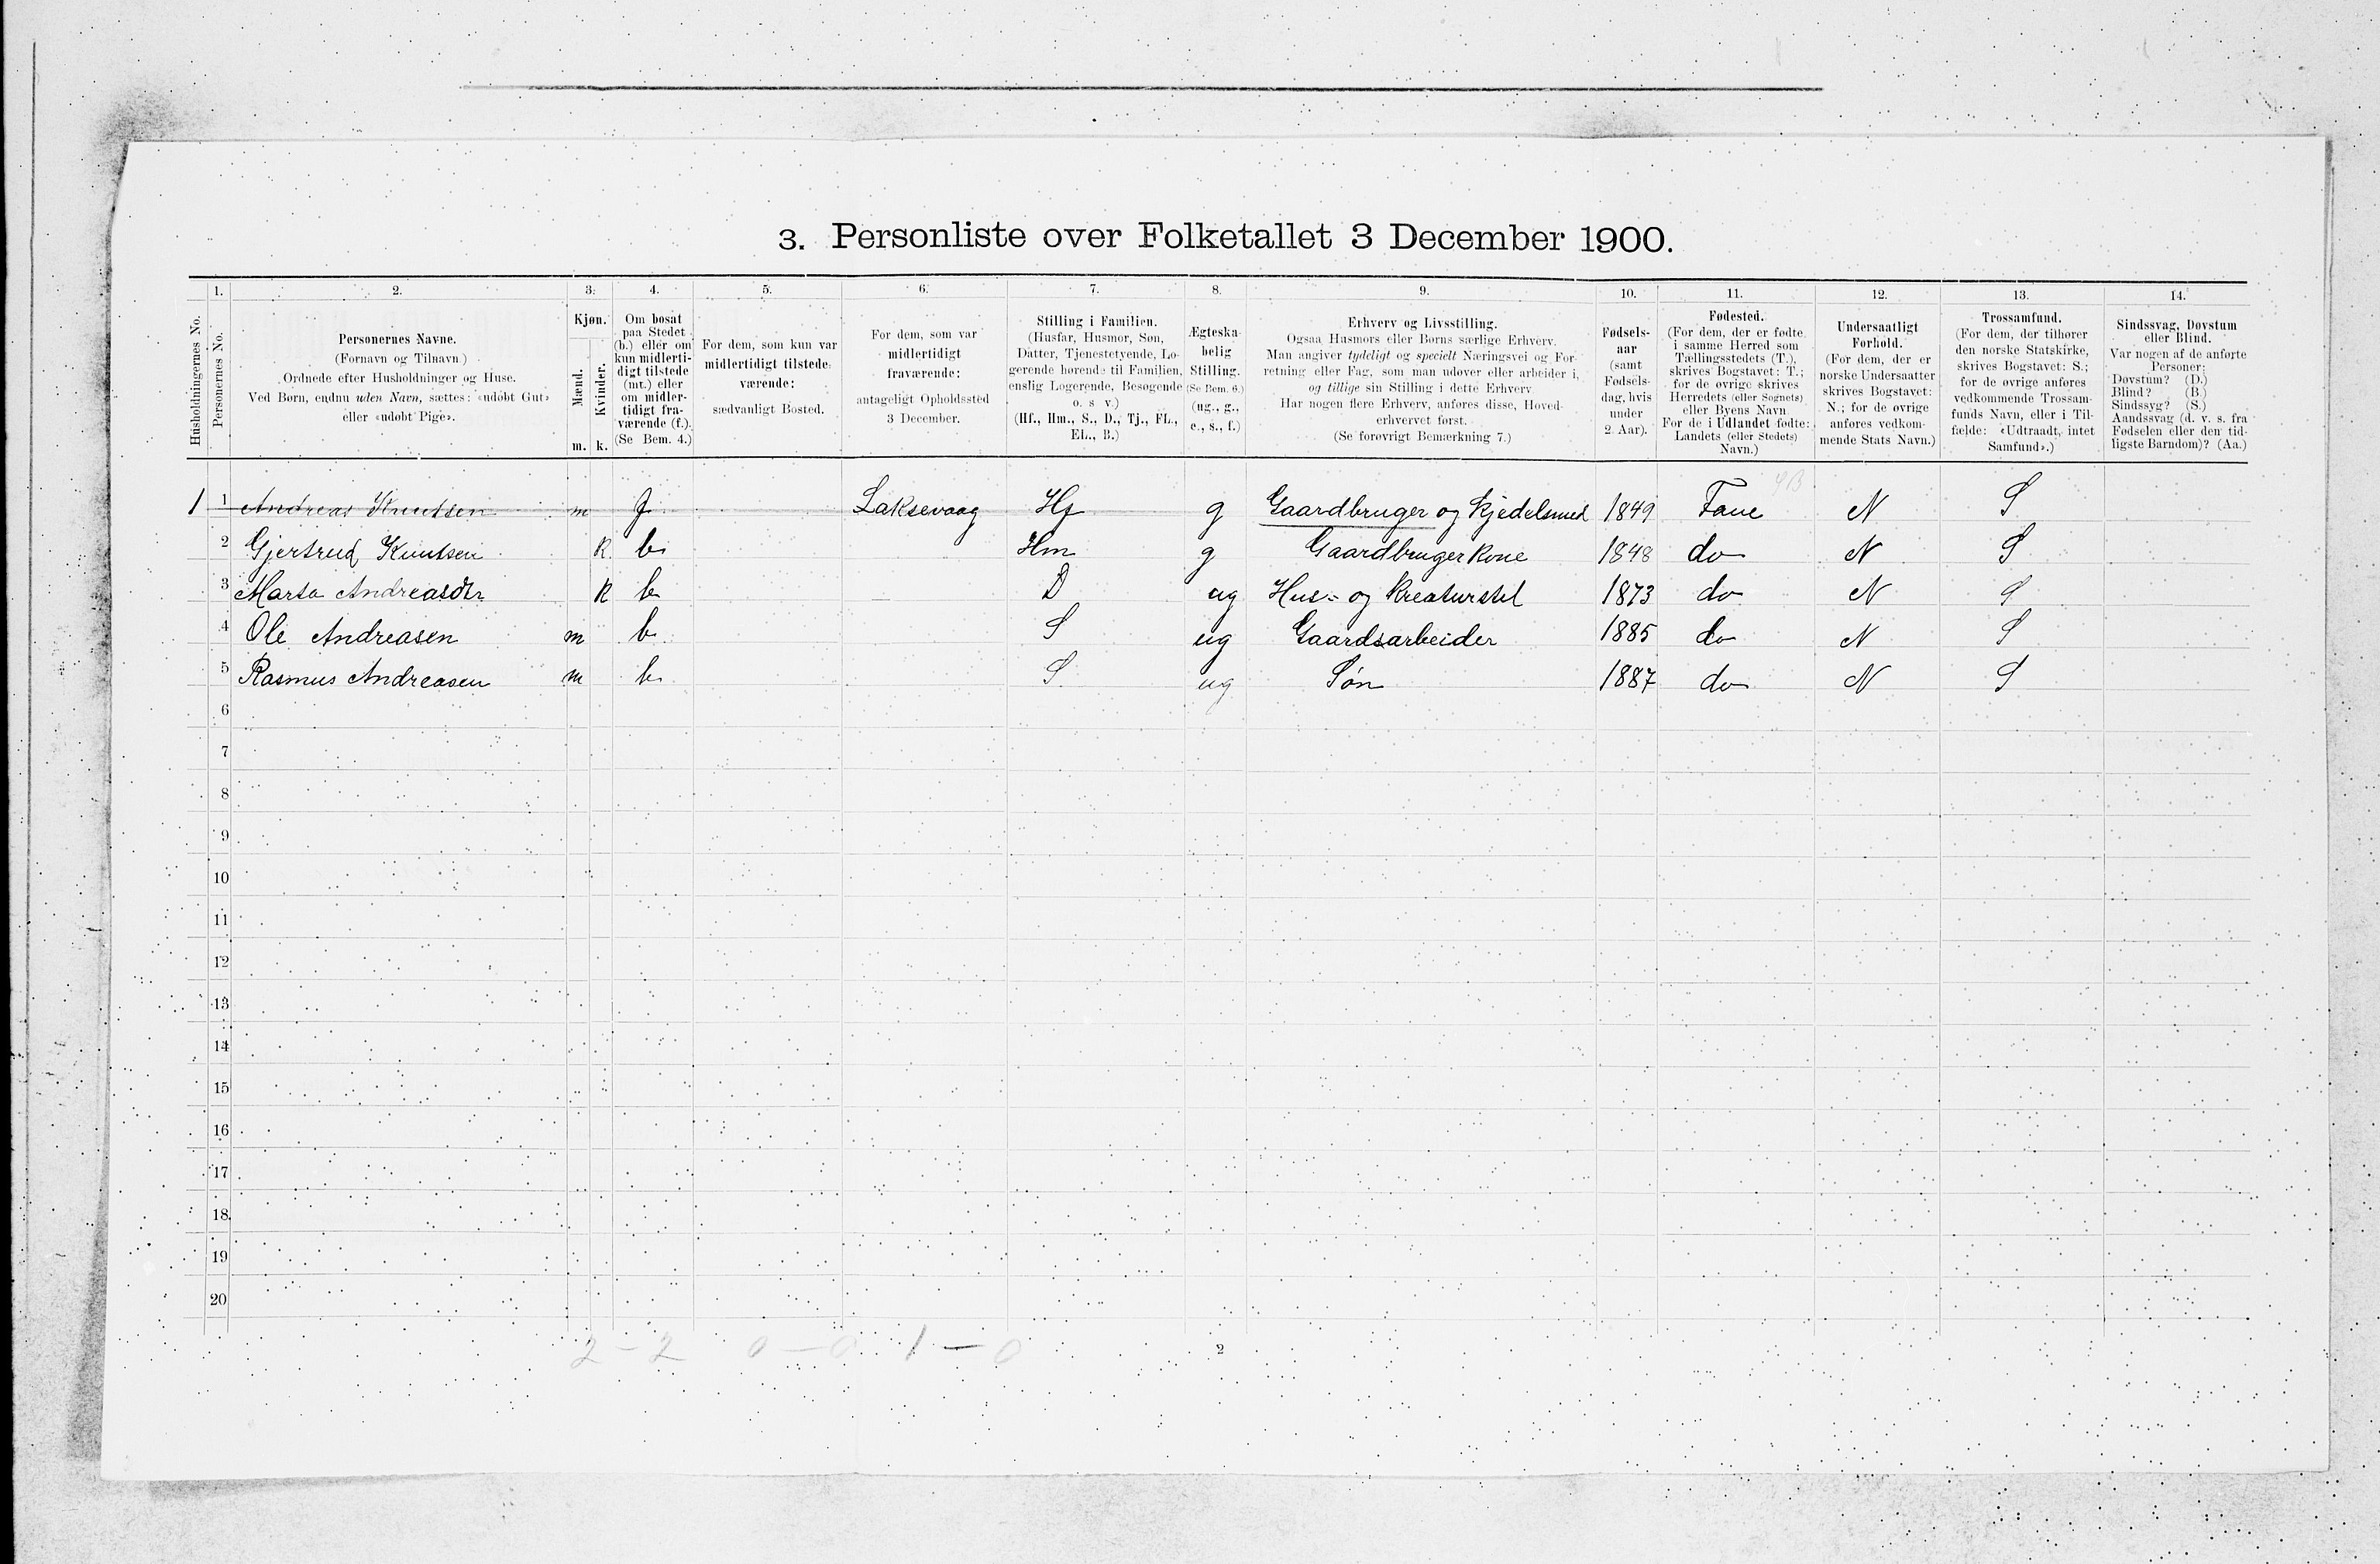 3. Personliste over Folketallet 3 December 1900.
1. 2. 3. 4. 5. 6. 7. 8. 9. 10. 11. 12. 13. 14.
Husholdningernes No.
Personernes No.
Personernes Navne.
(Fornavn og Tilnavn)
Ordnede efter Husholdninger og Huse.
Ved Børn, endnu uden Navn, sættes: «udøbt Gut»
eller «udøbt Pige».
Kjøn.
Mænd.
Kvinder.
m. k.
Om bosat
paa Stedet
(b.) eller om
kun midlerti-
digt tilstede
(mt.) eller
om midler-
tidigt fra-
værende (f.).
(Se Bem. 4.)
For dem, som kun var
midlertidigt tilstede-
værende:
sædvanligt Bosted.
For dem, som var
midlertidigt
fraværende:
antageligt Opholdssted
3 December.
Stilling i Familien.
(Husfar, Husmor, Søn,
Datter, Tjenestetyende, Lo-
gerende hørende til Familien,
enslig Logerende, Besøgende
o. s. v.)
(Hf., Hm., S., D., Tj., FL.,
EL., B.)
Ægteska-
belig
Stilling.
(Se Bem. 6.)
(ug., g.,
e., s., f.)
Erhverv og Livsstilling.
Ogsaa Husmors eller Børns særlige Erhverv.
Man angiver tydeligt og specielt Næringsvei og For-
retning eller Fag, som man udøver eller arbeider i,
og tillige sin Stilling i dette Erhverv.
Har nogen flere Erhverv, anføres disse, Hoved-
erhvervet først.
(Se forøvrigt Bemærkning 7.)
Fødsels-
aar
(samt
Fødsels-
dag, hvis
under
2 Aar).
Fødested.
(For dem, der er fødte
i samme Herred som
Tællingsstedets (T.),
skrives Bogstavet: T.;
for de øvrige skrives
Herredets (eller Sognets)
eller Byens Navn.
For de i Udlandet fødte:
Landets (eller Stedets)
Navn.)
Undersaatligt
Forhold.
(For dem, der er
norske Undersaatter
skrives Bogstavet:
N.; for de øvrige
anføres vedkom-
mende Stats Navn.)
Trossamfund.
(For dem, der tilhører
den norske Statskirke,
skrives Bogstavet: S.;
for de øvrige anføres
vedkommende Trossam-
funds Navn, eller i Til-
fælde: «Udtraadt, intet
Samfund».)
Sindssvag, Døvstum
eller Blind.
Var nogen af de anførte
Personer:
Døvstum? (D.)
Blind? (B.)
Sindssyg? (S.)
Aandssvag (d. v. s. fra
Fødselen eller den tid-
ligste Barndom)? (Aa.)
1 1 Andreas Knutsen m f Laksevaag Hf g Gaardbruger og Kjedelsmed 1849 Fane N S
2 Gjertrud Knutsen k b Hm g Gaardbrugerkone 1848 do N S
3 Marta Andreasdtr k b D ug Hus- og Kreaturstel 1873 do N S
4 Ole Andreasen m b S ug Gaardsarbeider 1885 do N S
5 Rasmus Andreasen m b S ug Søn 1887 do N S
6
7
8
9
10
11
12
13
14
15
16
17
18
19
20
2 - 2 0 - 0 1 - 0
2